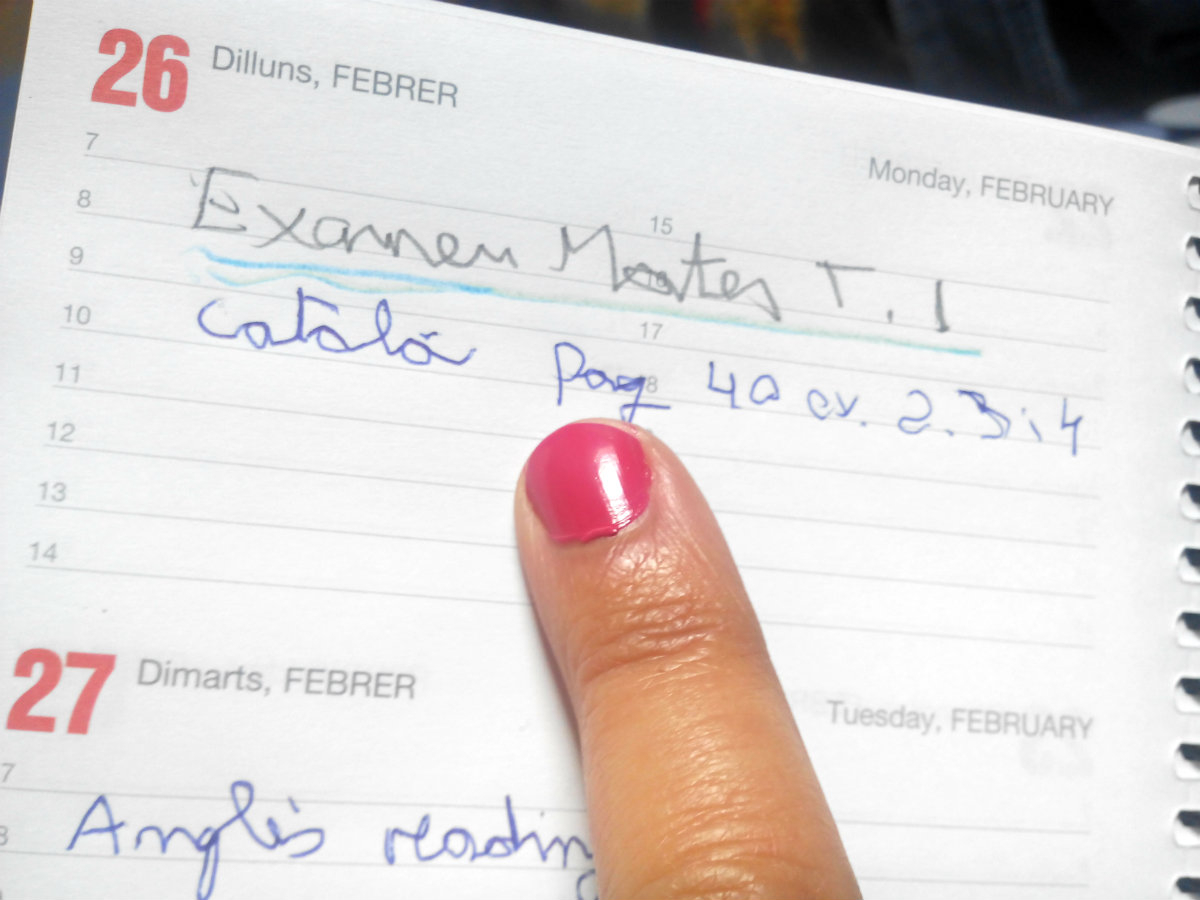 26 Dilluns, FEBRER
Monday, FEBRUARY
7
8 15
Examen Mates T. 1
9
10 17
Català Pag 40 ex. 2. 3 i 4
11 18
12
13
14
27 Dimarts, FEBRER
Tuesday, FEBRUARY
7
8
Anglès reading